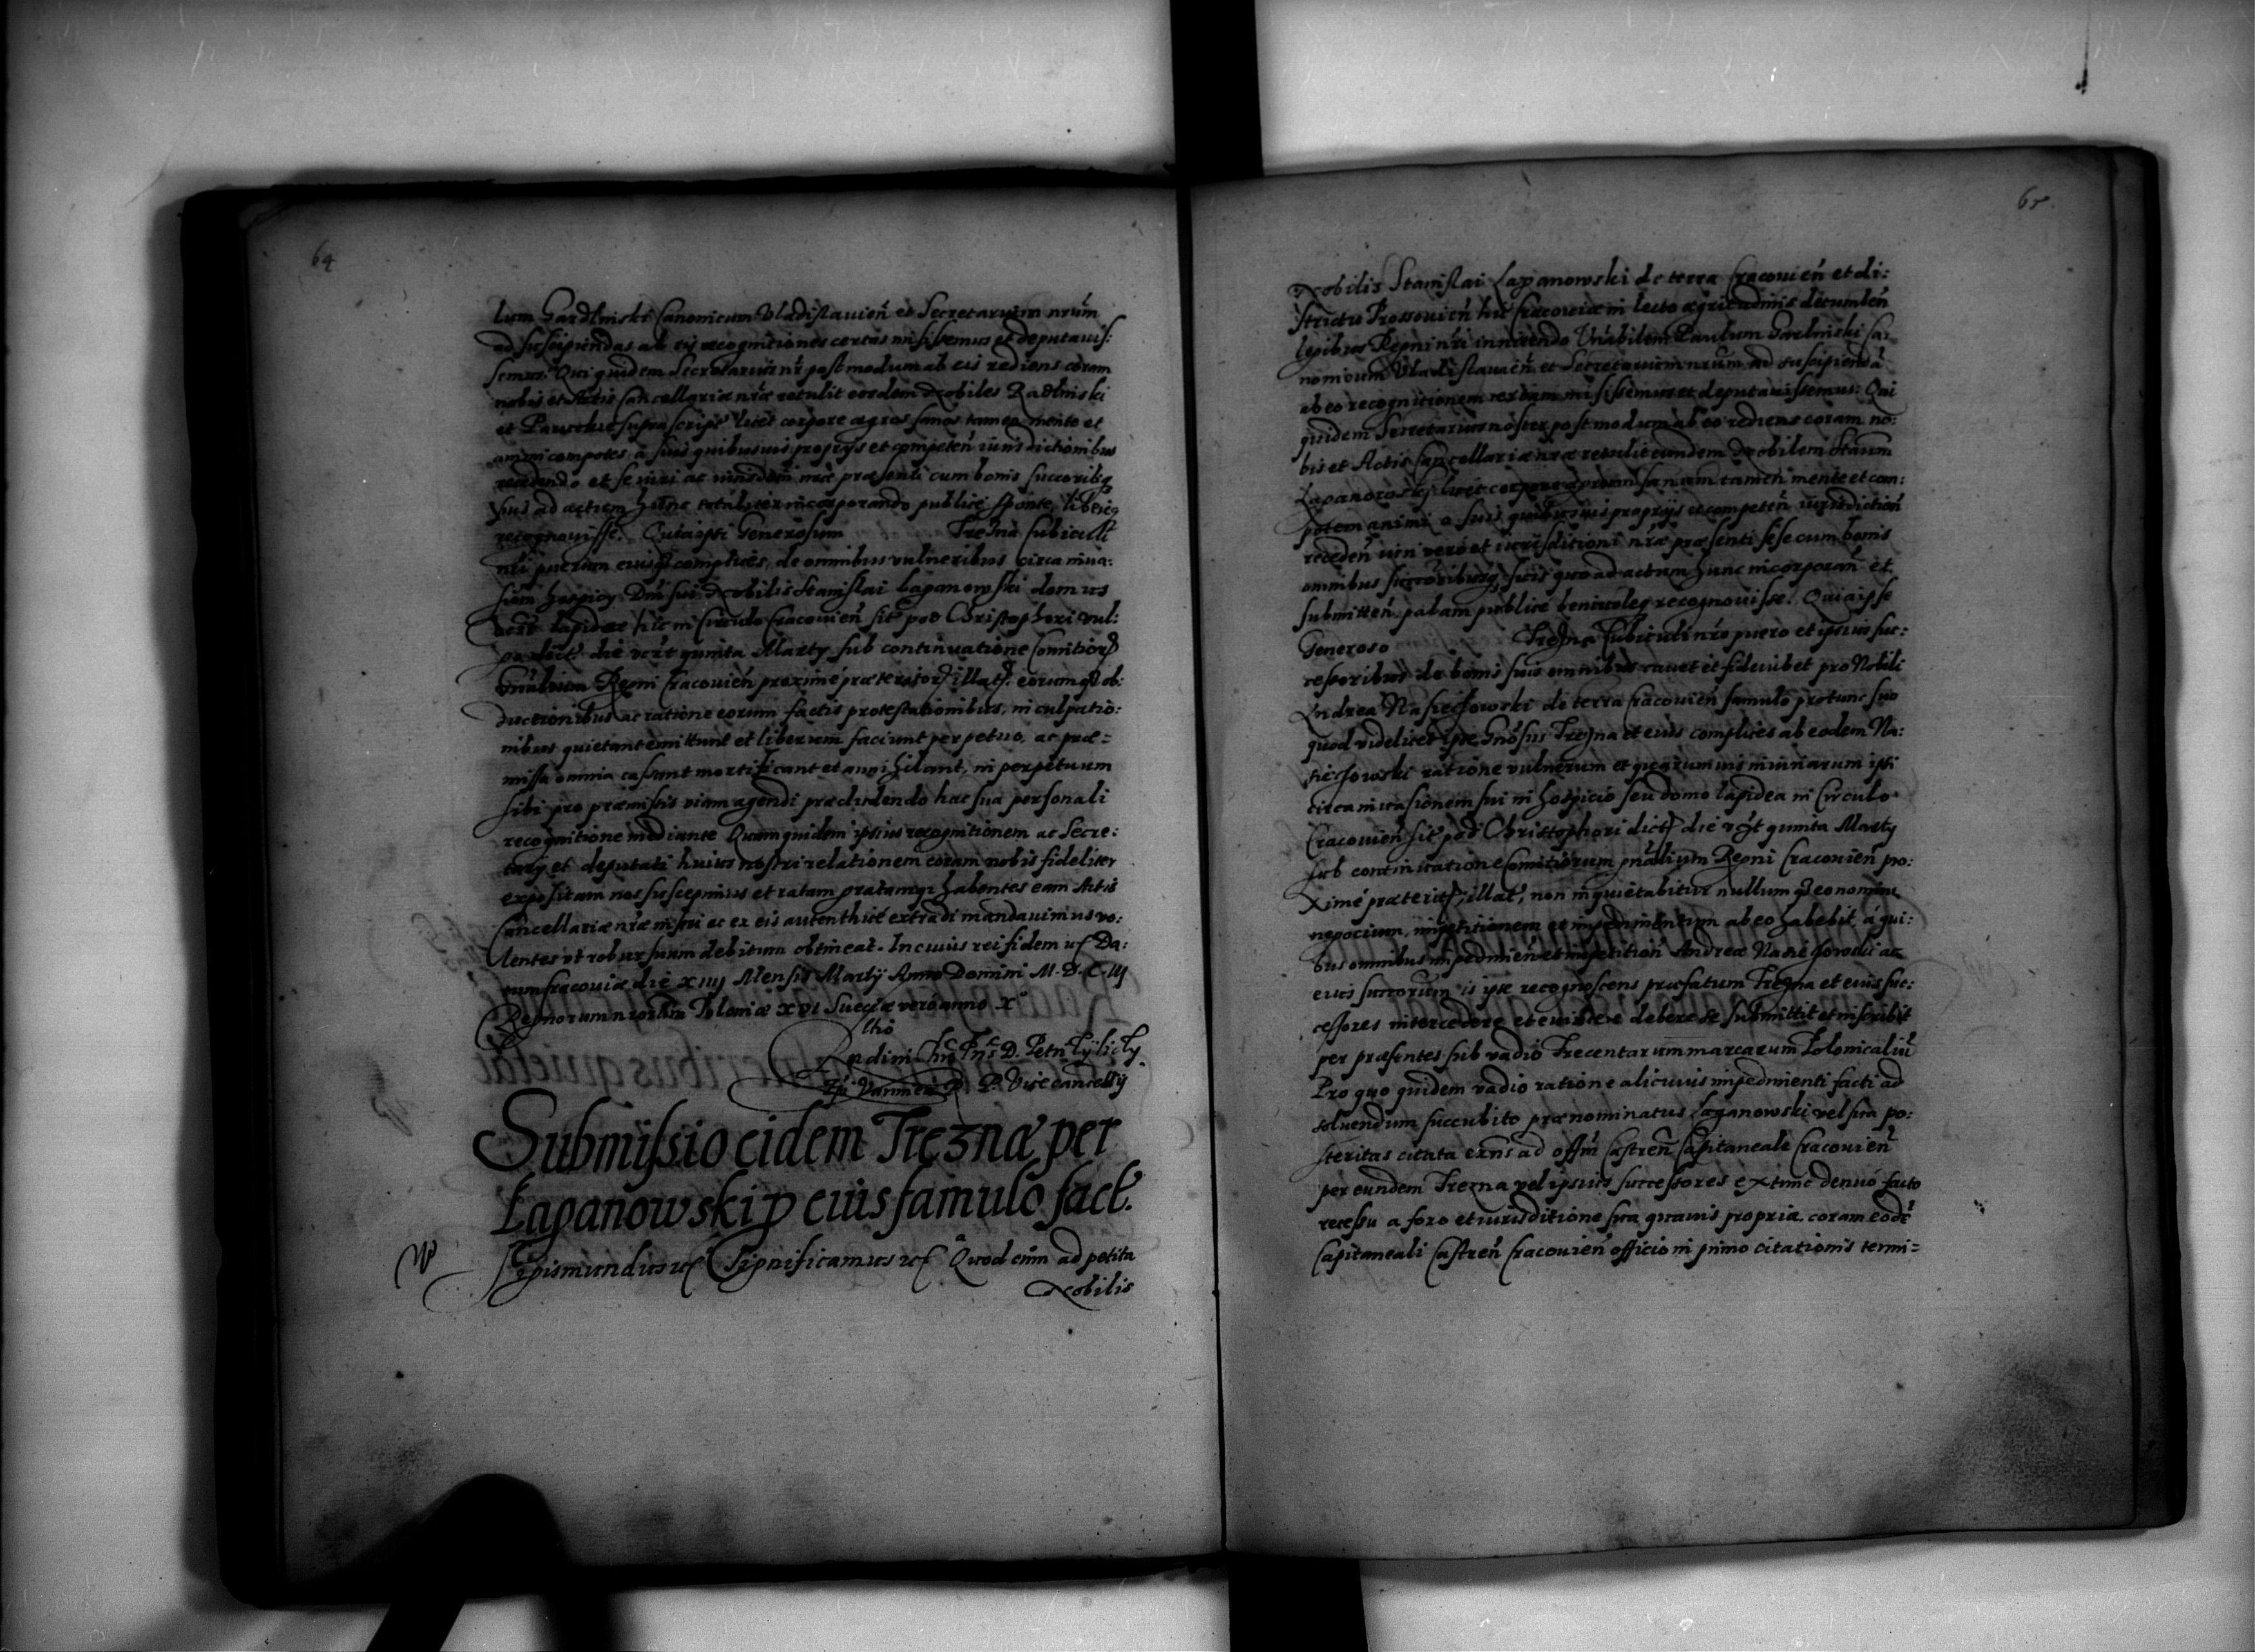 64
lum Gardlinski Canonicum Vladislauień et Secretarium nrũm
ad suscipiendas ab iis recognitiones certas misissemus et deputauis:
semus. Qui quidem Secretarius nr postmodum ab eis rediens coram
nobis et Actis Cancellariæ nræ retulit eosdem Nobiles Radlinski
et suprascript licet corpore ægros sanos tamen mente et
animi compotes a suis quibusuis proprys et competeń iurisdictionibus
recedendo et se iuri ac iurisdictni nræ præsenti cum bonis succoribq
suis ad actum hunc totaliter incorporando publice sponte, libereq
recognouisse. Quia ipsi Generosum Trezna Cubiculi
nri puerum eiusq complices, de omnibus vulneribus circa inua:
sionem hospicy Dni sui Nobilis Stanislai Łaganowski domus
lapideæ hic in Circulo Cracouień sit pod Christophori vul:
dict die vert quinta Marty sub continuatione Comitiorꝝ
Gnãlium Regni Cracouień proximè præteritorꝝ illatꝝ. eorumqꝫ ob:
ductionibus ac ratione eorum factis protestationibus, inculpatio:
nibus quietant emittunt et liberum faciunt perpetuo, ac præ=
missa omnia cassant mortificant et annihilant, in perpetuum
sibi pro præmissis viam agendi præcludendo hac sua personali
recognitione mediante Quam quidem ipsius recognitionem ac Secre:
tary et deputati huius nostri relationem coram nobis fideliter
expositam nos suscepimus et ratam gratamqꝫ habentes eam Actis
Cancellariæ nræ inseri ac ex eis autenthicè extradi mandauimus vo:
lentes vt robur suum debitum obtineat. In cuius rei fidem ꝛc Da:
tum Cracouiæ die XIIII Mensis Marty Anno Domini M.D.C.III
Regnorum nrorũm Poloniæ XVI Sueciæ verò anno X°
Rndini in Chro Pris D. Petri Tylicky
Epi Varmień R. P. Vicecancelly
Submissio eidem Trezna per
Łaganowski p eius famulo fact.
Sigismundus ꝛc Significamus ꝛc Quod cùm ad petita
Nobilis
65
Nobilis Stanislai Łaganowski de terra Cracouień et di:
strictu Prossouień hic Cracouiæ in lecto ægritudinis decumbeń
legibus Regni nri innitendo Vnãbilem Paulum Gardlinski Ca:
nonicum Vladislauień et Secretarium nrũm ad suscipiendã
ab eo recognitionem certam misissemus et deputauissemus: Qui
quidem Secretarius noster postmodum ab eo rediens coram no:
bis et Actis Cancellariæ nræ retulit eundem Nobilem Stanm
Łaganowski licet corpore ægrum sanum tamen mente et com:
potem animi a suis quibusuis proprijs et competeń iurisdiction
recedeń iuri verò et iurisditioni nræ præsenti sese cum bonis
omnibus succoribusqꝫ suis quo ad actum hunc incorporań et
submitteń palam publicè beneuoleq recognouisse. Quia ipse
Generoso Trezna Cubiculi nro puero et ipsius suc:
cessoribus de bonis suis omnibus cauet et fideiubet pro Nobili
Andrea de terra Cracouień famulo protunc suo
quod videlicet ipse Gnosus Trezna et eius complices ab eodem Na:
ratione vulnerum et quarumuis iniuriarum ipsi
circa inuasionem sui in hospicio seu domo lapidea in Circulo
Cracouień sit pod Christophori dict die vert quinta Marty
sub continuatione Comitiorum gnãlium Regni Cracouień pro:
ximè præteritꝝ, illat, non inquietabitur nullumqꝫ eo nomine
negocium, impetitionem et impedimentum ab eo habebit, a qui:
bus omnibus impedimeń et impetition Andreæ ac
eius succorum is ipse recognoscens præfatum Trezna et eius suc:
cessores intercedere et euincere debere se submittit et inscribit
per præsentes sub vadio Trecentarum marcarum Polonicaliũ
Pro quo quidem vadio ratione alicuius impedimenti facti ad
soluendum succubito prænominatus Łaganowski vel sua po:
steritas citata exns ad offm Castreń Capitaneale Cracouień
per eundem Trezna vel ipsius successores extunc denuò facto
recessu a foro et iurisditione sua quauis propria. coram eodē
Capitaneali Castreń Cracouień officio in primo citationis termi=